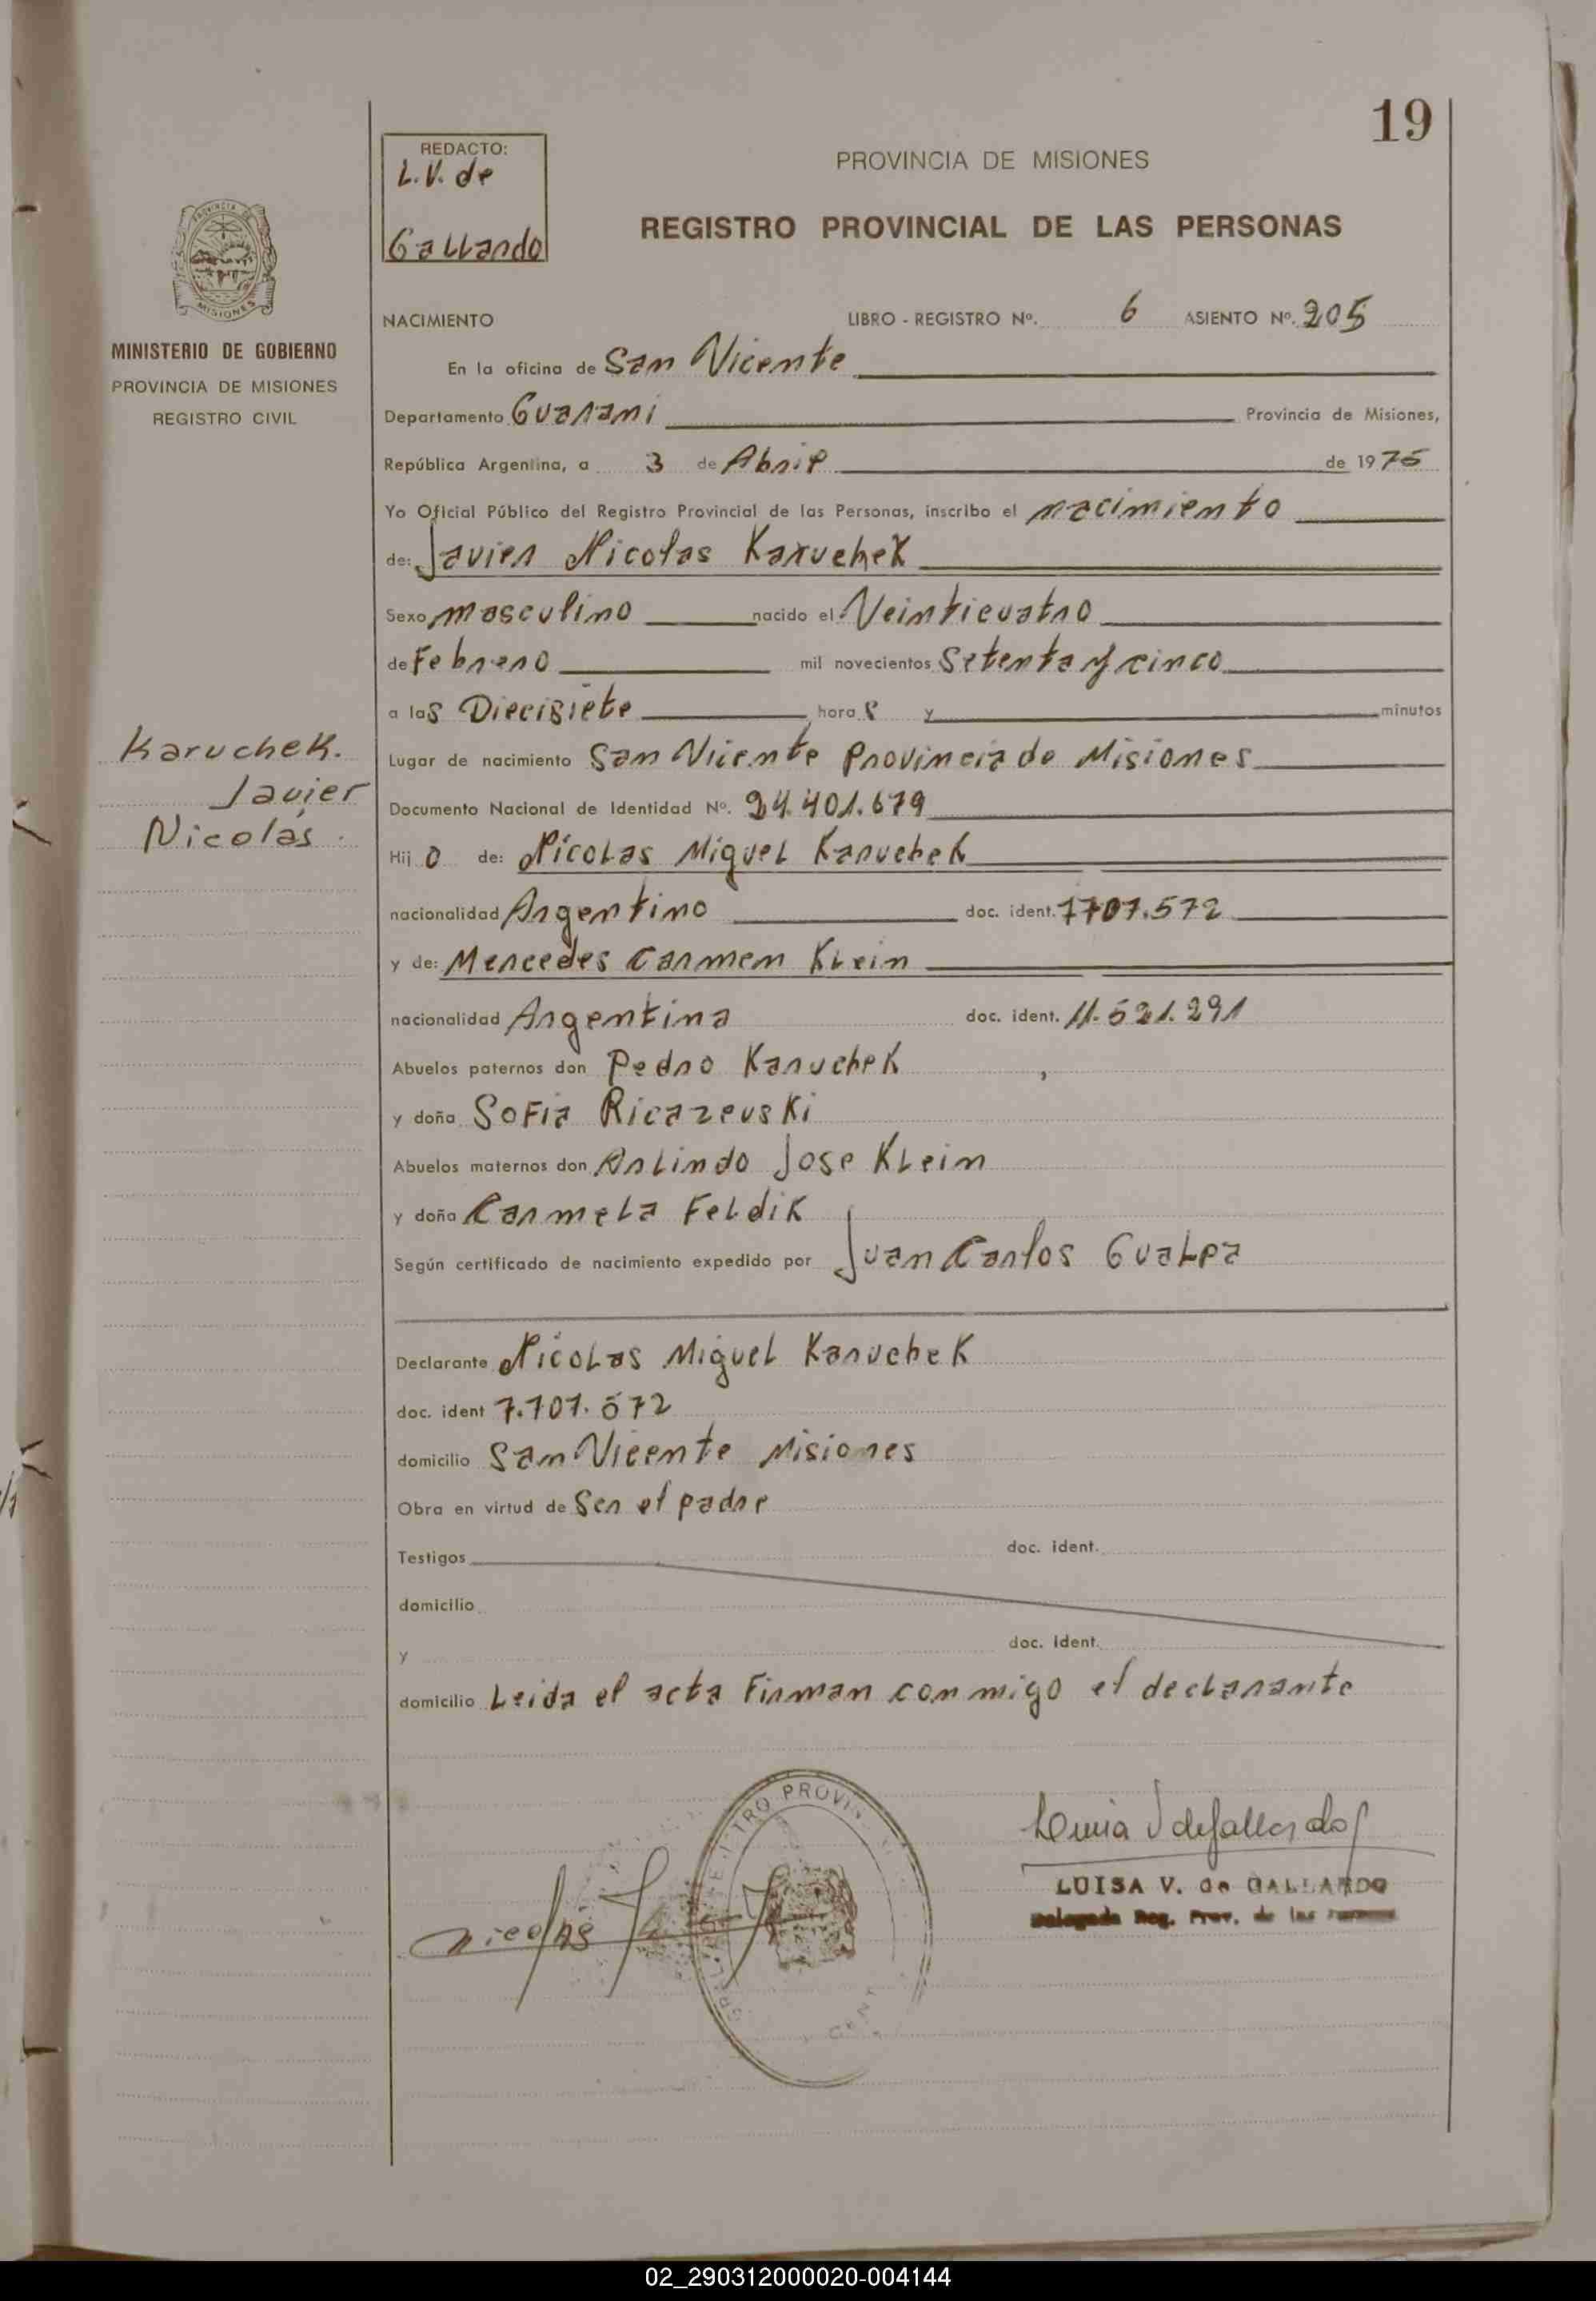 19
REDACTO:
L.V. de
Gallardo
PROVINCIA DE MISIONES
REGISTRO PROVINCIAL DE LAS PERSONAS
PROVINCIA DE
MISIONES
MINISTERIO DE GOBIERNO
PROVINCIA DE MISIONES
REGISTRO CIVIL
NACIMIENTO LIBRO - REGISTRO Nº. 6 ASIENTO Nº. 205
En la oficina de San Vicente
Departamento Guarani Provincia de Misiones,
República Argentina, a 3 de Abril de 1975
Yo Oficial Público del Registro Provincial de las Personas, inscribo el nacimiento
de: Javier Nicolas Karuchek
Sexo masculino nacido el Veinticuatro
de Febrero mil novecientos Setenta y cinco
a las Diecisiete hora s y minutos
Karuchek.
Javier
Nicolás.
Lugar de nacimiento San Vicente Provincia de Misiones
Documento Nacional de Identidad Nº. 24.401.679
Hij o de: Nicolas Miguel Karuchek
nacionalidad Argentino doc. ident. 7707.572
y de: Mercedes Carmen Klein
nacionalidad Argentina doc. ident. 11.521.291
Abuelos paternos don Pedro Karuchek
y doña Sofia Ricazeuski
Abuelos maternos don Arlindo Jose Klein
y doña Carmela Feldik
Según certificado de nacimiento expedido por Juan Carlos Gualpa
Declarante Nicolas Miguel Karuchek
doc. ident 7.707.572
domicilio San Vicente Misiones
Obra en virtud de Ser el padre
Testigos doc. ident.
domicilio
y doc. ident.
domicilio Leida el acta Firman conmigo el declarante
Nicolas
Luisa V de Gallardo
LUISA V. de GALLARDO
Delegada Reg. Prov. de las Personas
02_290312000020-004144